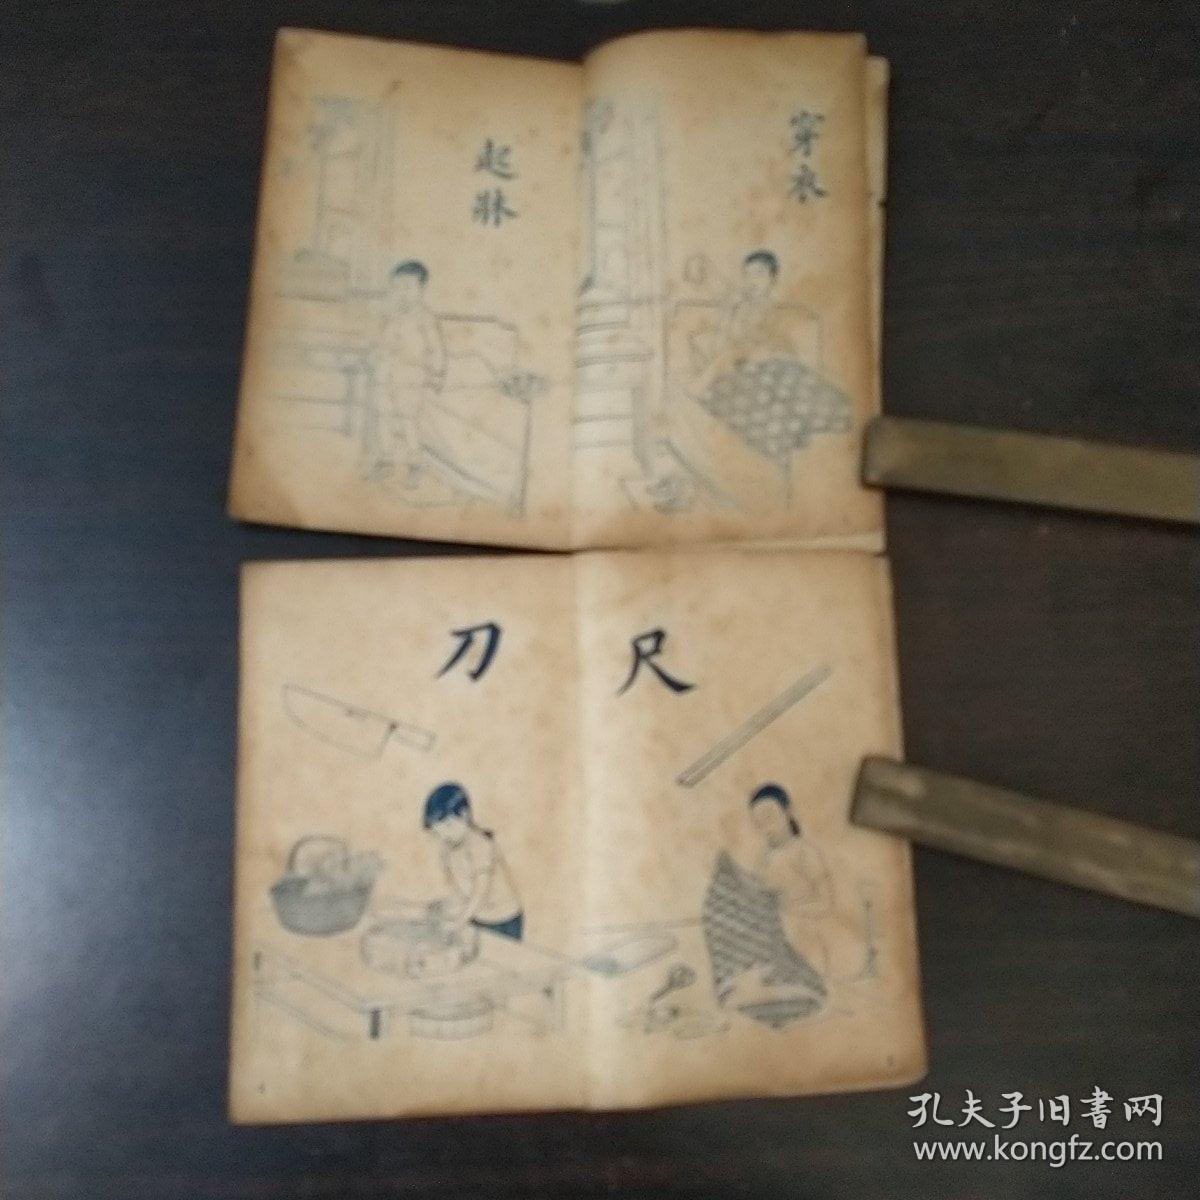 穿衣
起牀
尺
刀
4
孔夫子旧書网
www.kongfz.com